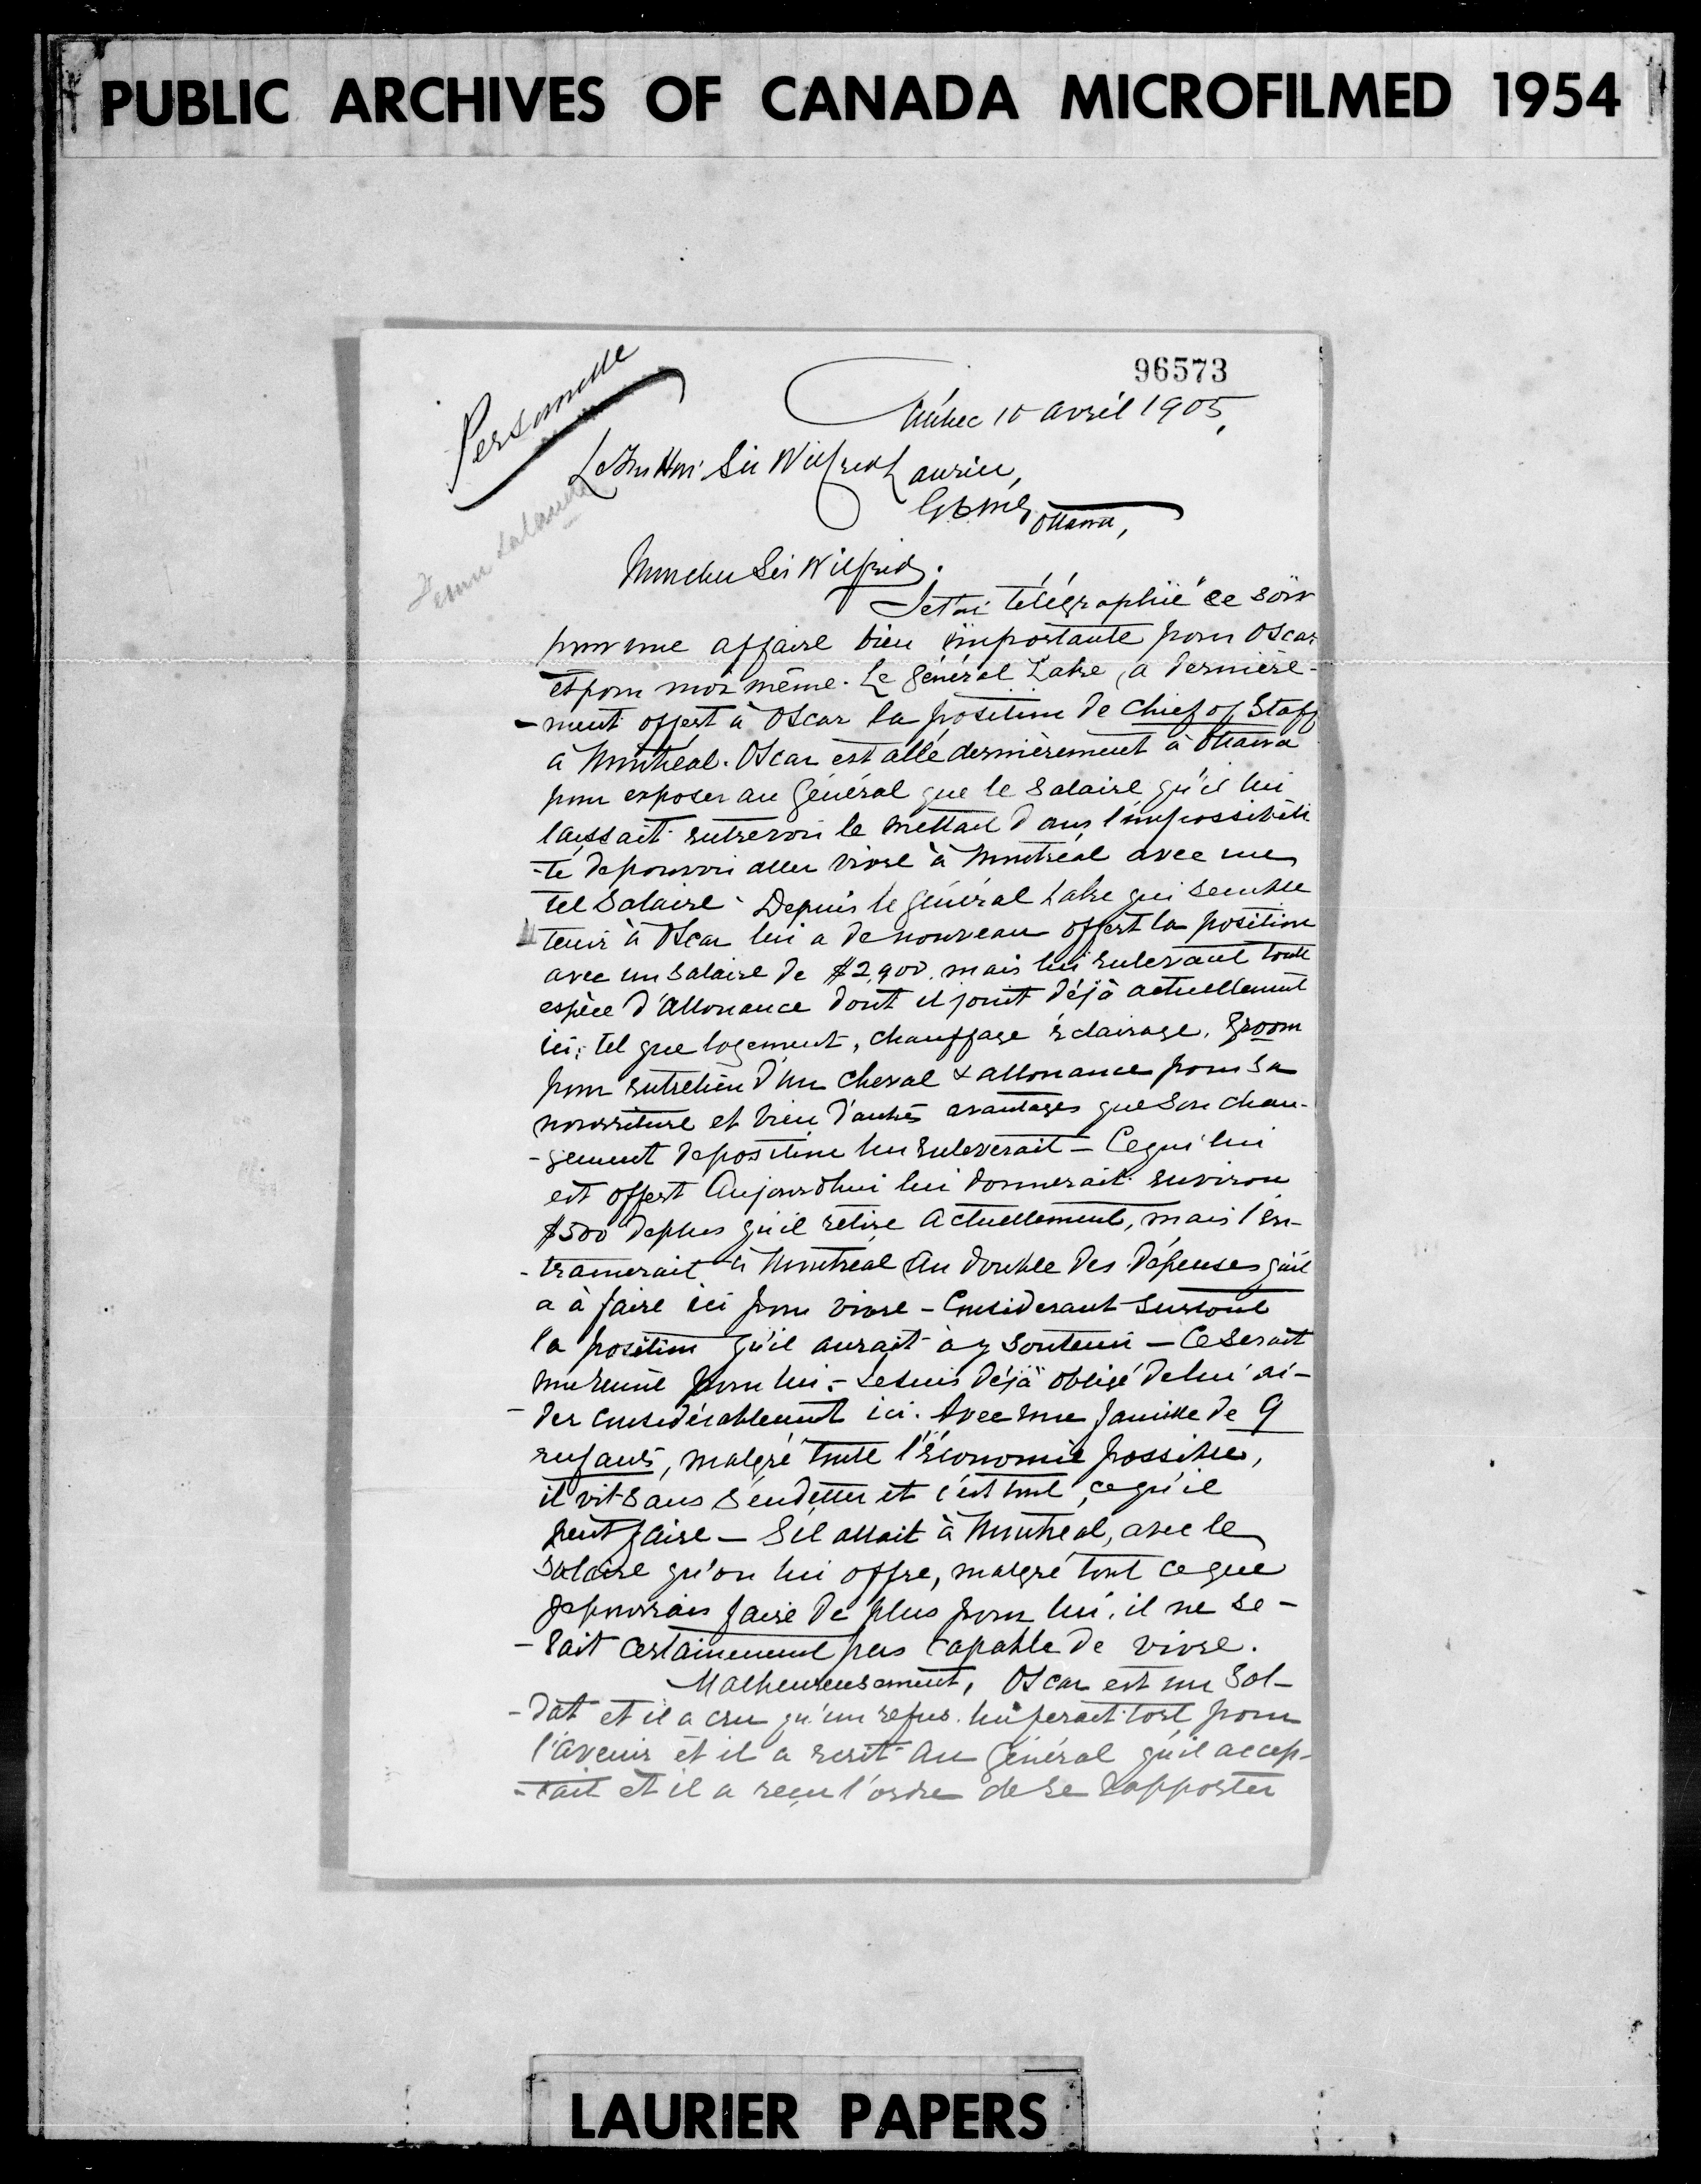 PUBLIC ARCHIVES OF CANADA MICROFILMED 1954
96573
Personnelle
Québec 10 avril 1905,
Le Très Hon. Sir Wilfrid Laurier,
Ottawa,
Mon cher Sir Wilfrid.
Je t'ai télégraphié ce soir
pour une affaire bien importante pour Oscar
et pour moi même. Le Général Lake, a dernière-
-ment offert à Oscar la position de Chief of Staff
à Montréal. Oscar est allé dernièrement à Ottawa
pour exposer au Général que le salaire qu'il lui
laissait entrevoir le mettait dans l'impossibili
-té de pouvoir aller vivre à Montréal avec un
tel salaire. Depuis le Général Lake qui semble
tenir à Oscar lui a de nouveau offert la position
avec un salaire de $2,900. mais lui enlevant toute
espèce d'allouance dont il jouit déjà actuellement
ici; tel que logement, chauffage éclairage, groom
pour entretien d'un cheval & allouance pour sa
nourriture et bien d'autres avantages que son chan-
-gement de position lui enleverait - Ce qui lui
est offert Aujourdhui lui donnerait environ
$500 de plus qu'il retire Actuellement, mais l'en-
-trainerait à Montréal au double des dépenses qu'il
a à faire ici pour vivre - Considerant surtout
la position qu'il aurait à y soutenir - Ce serait
une ruine pour lui. - Je suis déjà obligé de lui ai-
-der considérablement ici. Avec une famille de 9
enfants, malgré toute l'économie possible,
il vit sans s'endetter et c'est tout ce qu'il
peut faire - S'il allait à Montréal, avec le
salaire qu'on lui offre, malgré tout ce que
je pourrais faire de plus pour lui, il ne se-
-rait certainement pas capable de vivre.
Malheureusement, Oscar est un sol-
-dat et il a cru qu'un refus lui ferait tort pour
l'avenir et il a écrit au Général qu'il accep-
-tait et il a reçu l'ordre de se rapporter
LAURIER PAPERS